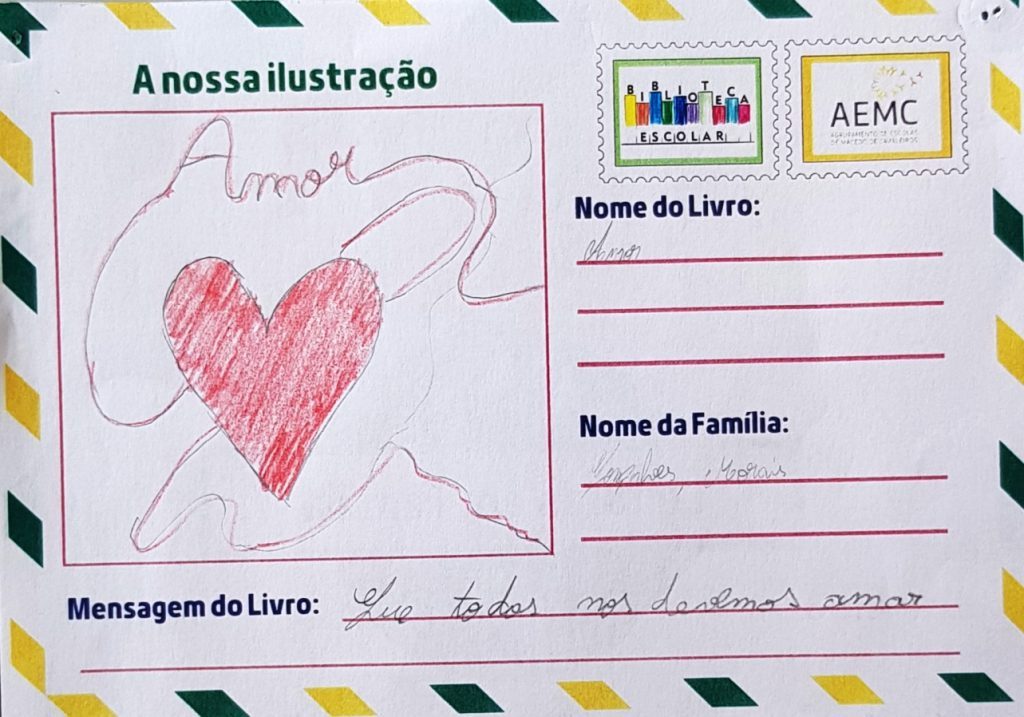 A nossa ilustração
Amor
BIBLIOTECA
ESCOLAR
AEMC
AGRUPAMENTO DE ESCOLAS
DE MACEDO DE CAVALEIROS
Nome do Livro:
Amor
Nome da Família:
Gonçalves, Morais
Mensagem do Livro: Que todos nos devemos amar